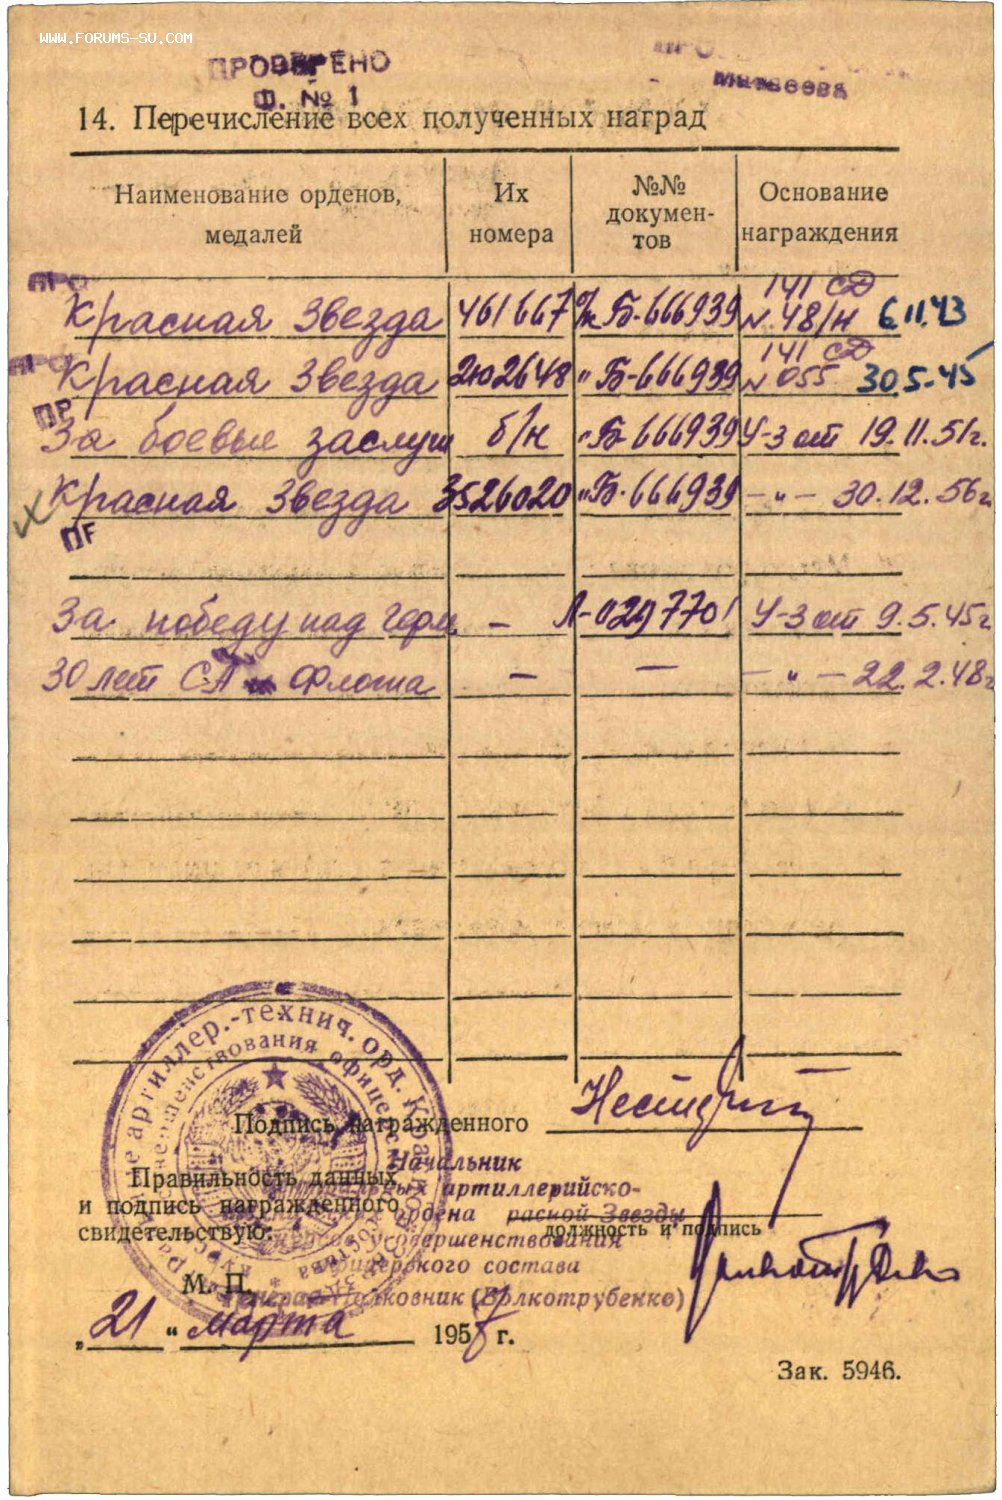 WWW.FORUMS-SU.COM
ПРОВЕРЕНО
Ф. № 1
Матвеева
14. Перечисление всех полученных наград
Наименование орденов, медалей Их номера №№ документов Основание награждения
ПРО
Красная Звезда 461667 Б-666939 141 СД № 48/н 6.11.43
ПРО
Красная Звезда 2102648 " Б-666939 141 СД № 055 30.5.45
ПР
За боевые заслуги б/н " Б-666939 У-з от 19.11.51г.
Красная Звезда 3526020 " Б-666939 — " — 30.12.56г
ПР
За победу над Герм. — Л-0297701 У-з от 9.5.45г.
30 лет СА и Флота — — — " — 22.2.48г
Подпись награжденного
Правильность данных
и подпись награжденного
свидетельствую:
Начальник
артиллерийско-
ордена расной Звезды
должность и подпись
усовершенствования
офицерского состава
М. П.
Генерал-Полковник (Волкотрубенко)
„21“ марта 1958 г.
Зак. 5946.
артиллер.-технич. орд. Красной
усовершенствования офицерского состава